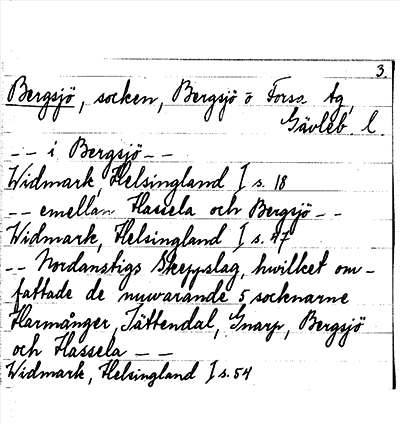 3.
Bergsjö, socken, Bergsjö o Forsa tg,
Gävleb. l.
-- i Bergsjö --
Widmark, Helsingland I s. 18
-- emellan Hassela och Bergsjö --
Widmark, Helsingland I s. 47
-- Nordanstigs Skeppslag, hwilket om-
fattade de nuvarande 5 socknarne
Harmånger, Jättendal, Gnarp, Bergsjö
och Hassela --
Widmark, Helsingland I s. 54